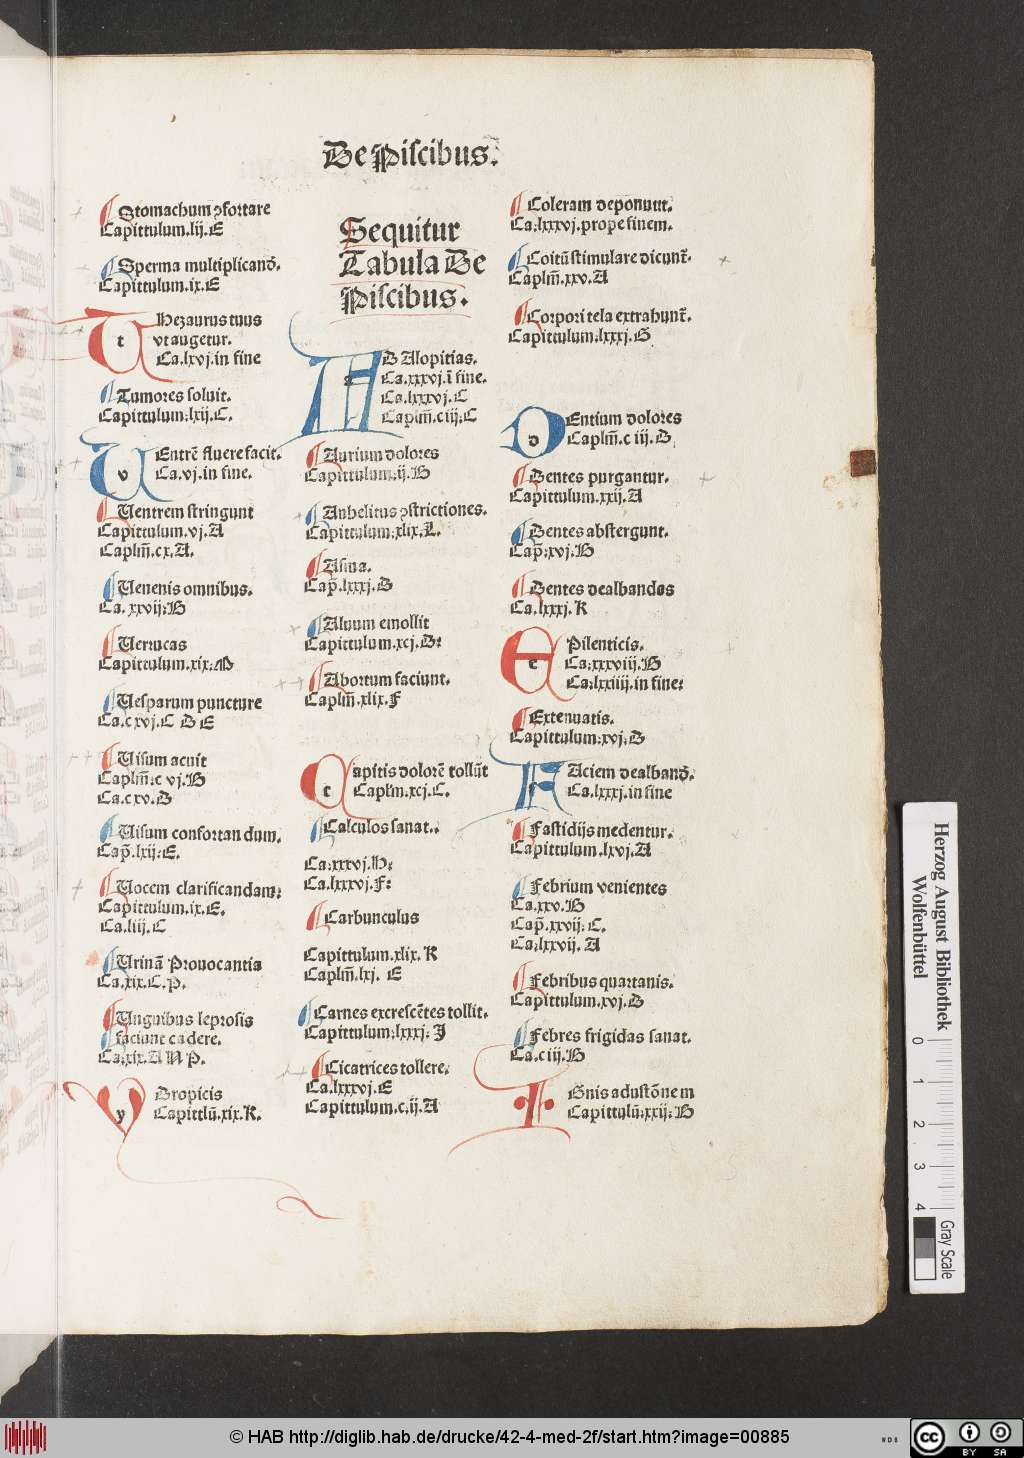 De Piscibus.
Stomachum ꝯfortare
Capittulum.lij.E
Sperma multiplicand̄.
Capittulum.ix.E
t Hezaurus tuus
vt augetur.
Ca.lxvj.in fine
Tumores soluit.
Capittulum.lxij.C.
v Entrē fluere facit.
Ca.vj.in fine.
Uentrem stringunt
Capittulum.vj.A
Caplm̄.cx.A.
Uenenis omnibus.
Ca.xxvij:B
Uerrucas
Capittulum.xix:M
Uesparum puncture
Ca.cxvj.C D E
Uisum acuit
Caplm̄:c vj.B
Ca.cxv.D
Uisum confortan dum.
Cap̄.lxij:E.
Uocem clarificandam:
Capittulum.ix.E.
Ca.liij.C
Urinā Prouocantia
Ca.xix.C.P.
Unguibus leprosis
faciunt cadere.
Ca:xix.A N P.
y Dropicis
Capittlū.xix.K.
Sequitur
Tabula De
Piscibus.
A B Alopitias.
Ca.xxxvj.ī fine.
Ca.lxxxvj.C
Caplm̄.ciij:C
Aurium dolores
Capittulum:ij.B
Anhelitus ꝯstrictiones.
Capittulum:xlix.L.
Asma.
Cap̄.lxxxj.D
Aluum emollit
Capittulum.xcj.D:
Abortum faciunt.
Caplm̄.xlix.F
c apitis dolorē tollūt
Caplm.xcj.C.
Calculos sanat..
Ca:xxxvj.H:
Ca.lxxxvj.F:
Carbunculus
Capittulum.xlix.K
Caplm̄.lxj. E
Carnes excrescētes tollit.
Capittulum:lxxxj:J
Cicatrices tollere.
Ca.lxxxvj.E
Capittulum.c.ij.A
Coleram depōnunt.
Ca:lxxxvj.prope finem.
Coitū stimulare dicunt̄.
Caplm̄.xxv.A
Corpori tela extrahunt̄.
Capittulum:lxxxj.G
d Entium dolores
Caplm̄.c iij.D
Dentes purgantur.
Capittulum.xxij.A
Dentes abstergunt.
Cap̄:xvj.B
Dentes dealbandos
Ca.lxxxj.K
e Pilenticis.
Ca:xxxviij.B
Ca:lxxiiij.in fine:
Extenuatis.
Capittulum:xvj:D
F Aciem dealband̄.
Ca.lxxxj.in fine
Fastidijs medentur.
Capittulum.lxvj.A
Febrium venientes
Ca.xxv.B
Cap̄.xxvij:C.
Ca:lxxvij. A
Febribus quartanis.
Capittulum.xvj.D
Febres frigidas sanat.
Ca.ciij:B
I Gnis adustōnem
Capittulū:xxij:B
Herzog August Bibliothek
Wolfenbüttel
0 1 2 3 4
Gray Scale
© HAB http://diglib.hab.de/drucke/42-4-med-2f/start.htm?image=00885
WDB
cc BY SA